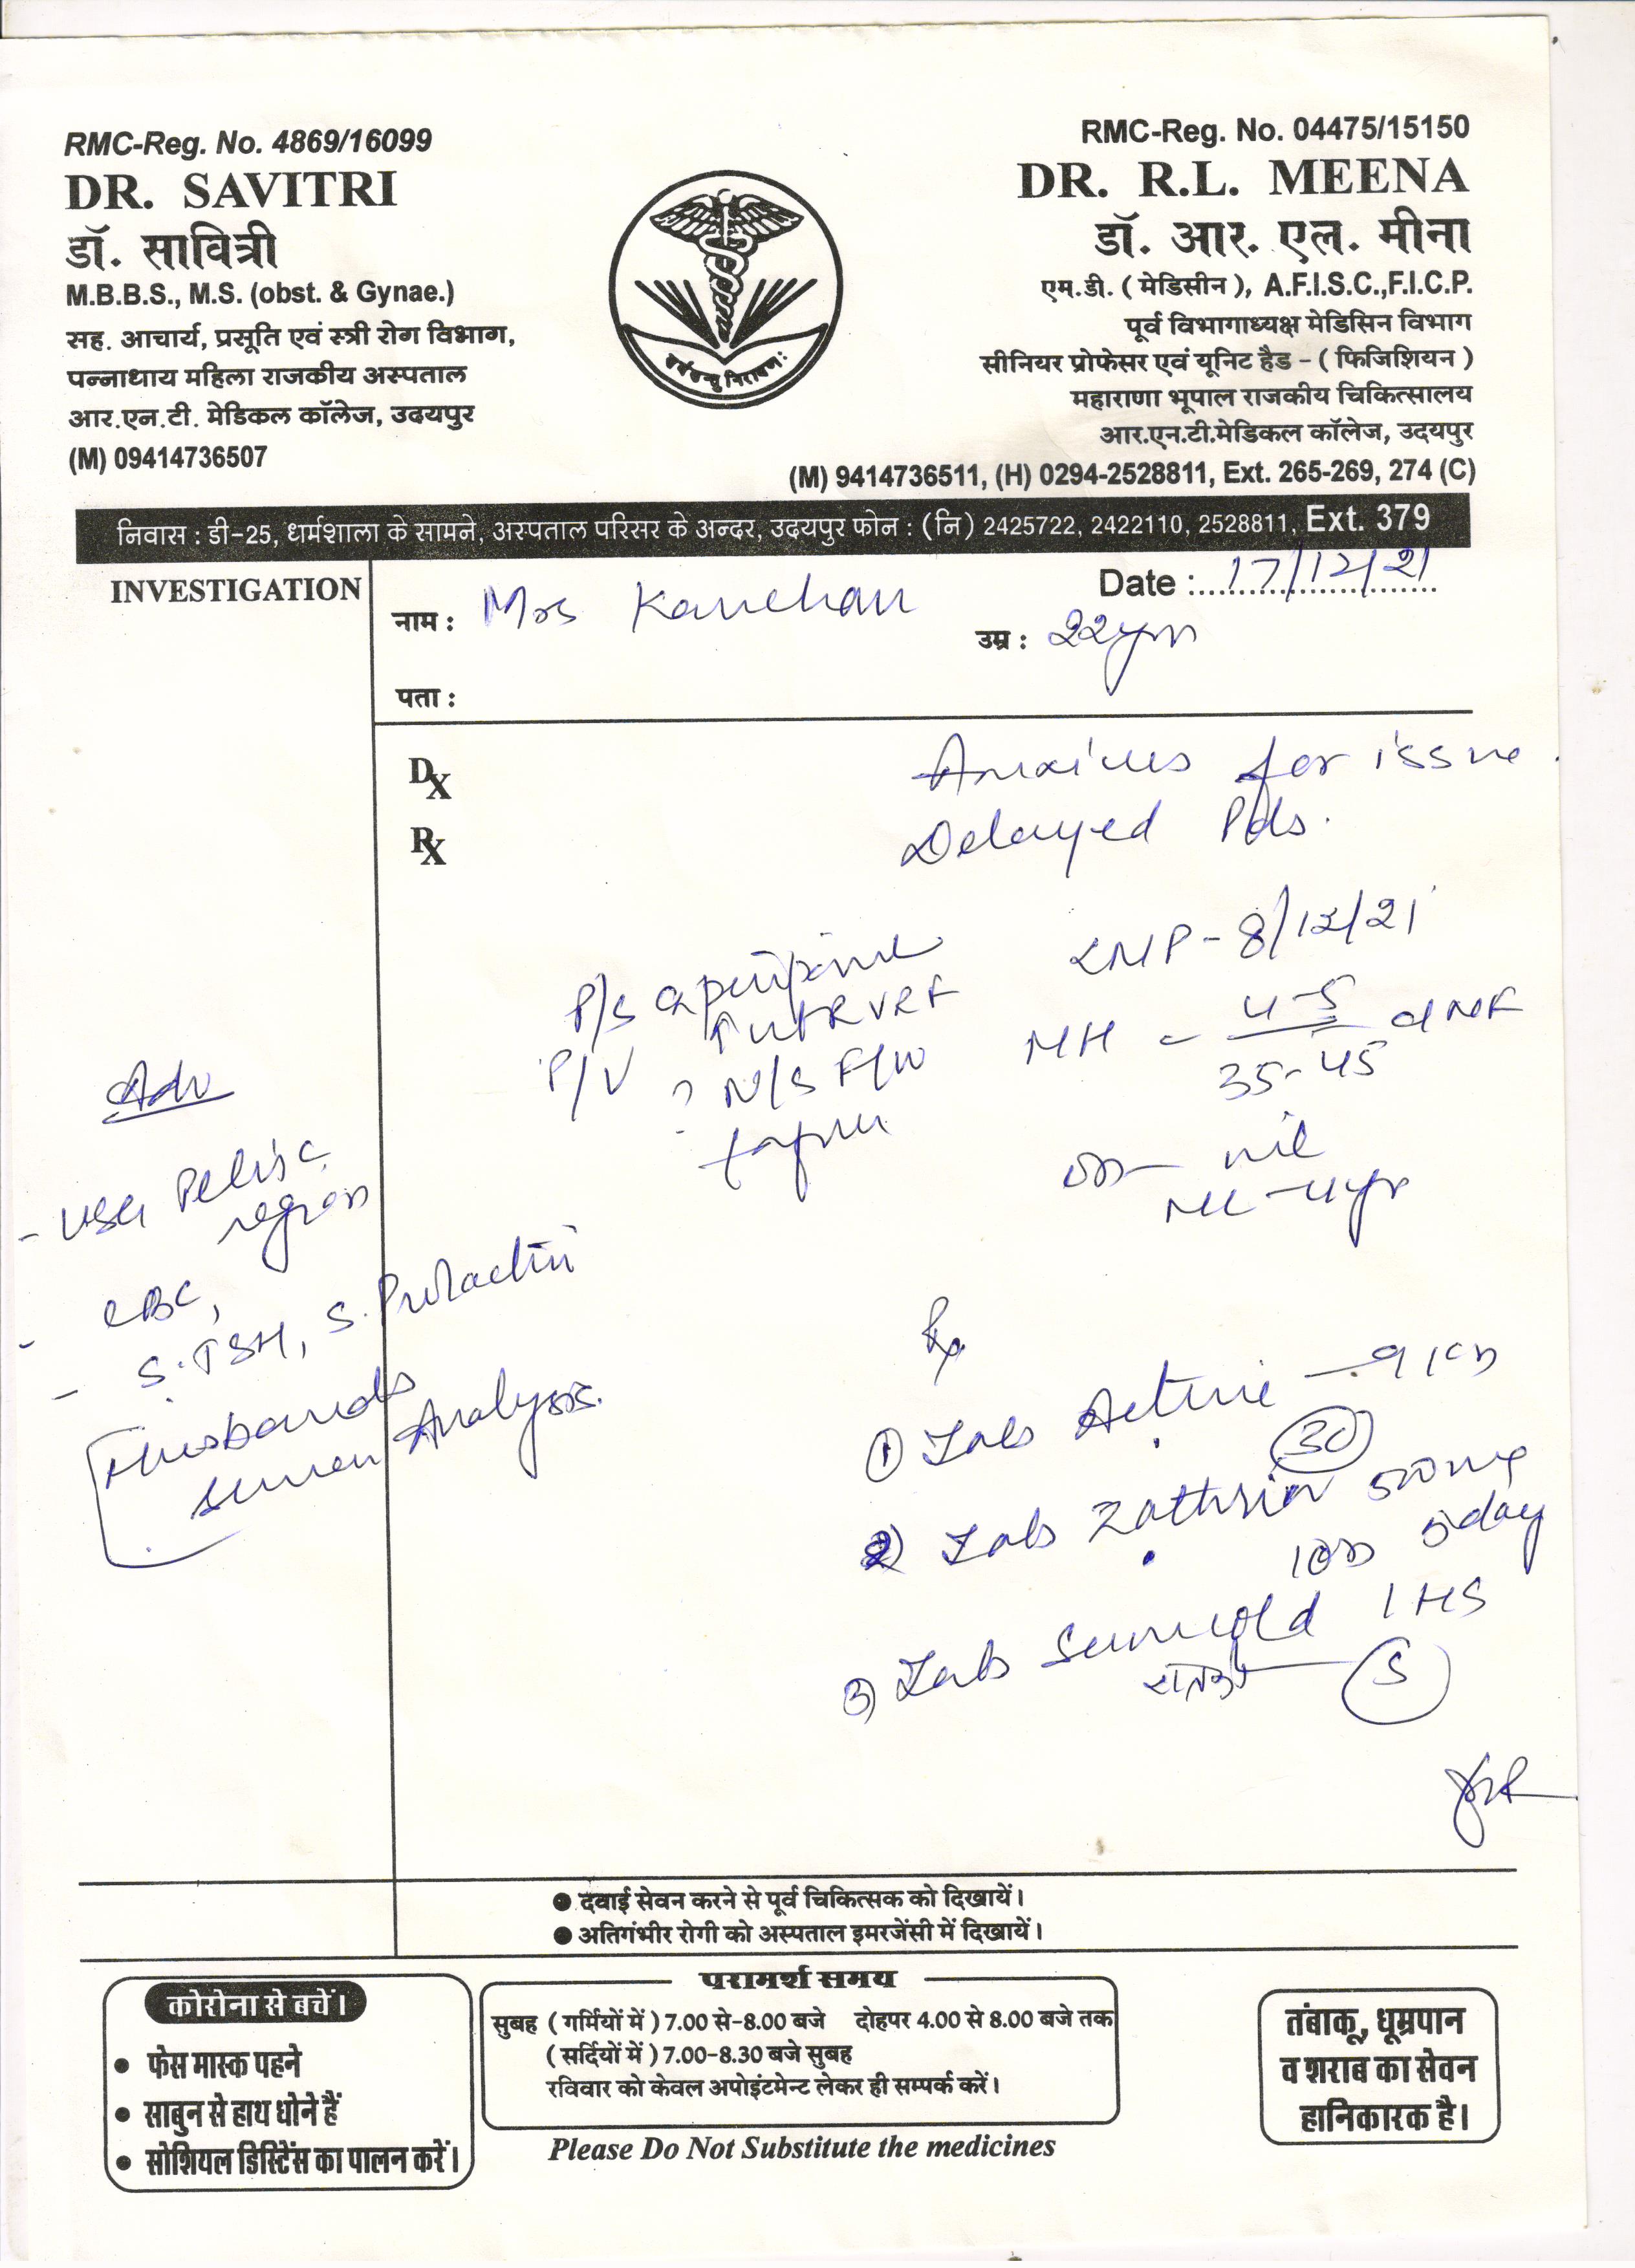 RMC-Reg. No. 4869/16099
DR. SAVITRI
डॉ. सावित्री
M.B.B.S., M.S. (obst. & Gynae.)
सह. आचार्य, प्रसूति एवं स्त्री रोग विभाग,
पन्नाधाय महिला राजकीय अस्पताल
आर.एन.टी. मेडिकल कॉलेज, उदयपुर
(M) 09414736507
RMC-Reg. No. 04475/15150
DR. R.L. MEENA
डॉ. आर. एल. मीना
एम.डी. ( मेडिसीन ), A.F.I.S.C.,F.I.C.P.
पूर्व विभागाध्यक्ष मेडिसिन विभाग
सीनियर प्रोफेसर एवं यूनिट हैड - ( फिजिशियन )
महाराणा भूपाल राजकीय चिकित्सालय
आर.एन.टी.मेडिकल कॉलेज, उदयपुर
(M) 9414736511, (H) 0294-2528811, Ext. 265-269, 274 (C)
निवास : डी-25, धर्मशाला के सामने, अस्पताल परिसर के अन्दर, उदयपुर फोन : (नि) 2425722, 2422110, 2528811, Ext. 379
INVESTIGATION
Date : 17/12/21
नाम : Mrs Kanchan
उम्र : 22yrs
पता :
DX
RX
Anxious for issue.
Delayed Pds.
LMP - 8/12/21
MH - 4-5
35-45
nil
ML - 4yr
P/S
P/V N/S F/W
Adv
- USG Pelvic
region
- CBC,
- S.TSH, S. Prolactin
Husbands
semen Analysis.
Rx
① Tab
30
2) Tab Zathrin 500mg
1OD 5day
3) Tab 1 HS
रात को 5
● दवाई सेवन करने से पूर्व चिकित्सक को दिखायें।
● अतिगंभीर रोगी को अस्पताल इमरजेंसी में दिखायें।
कोरोना से बचें।
• फेस मास्क पहने
• साबुन से हाथ धोने हैं
• सोशियल डिस्टिेंस का पालन करें।
परामर्श समय
सुबह ( गर्मियों में ) 7.00 से-8.00 बजे दोहपर 4.00 से 8.00 बजे तक
( सर्दियों में ) 7.00-8.30 बजे सुबह
रविवार को केवल अपोइंटमेन्ट लेकर ही सम्पर्क करें।
Please Do Not Substitute the medicines
तंबाकू, धूम्रपान
व शराब का सेवन
हानिकारक है।